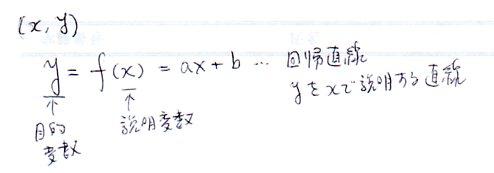 (x, y)
y = f(x) = ax + b … 回帰直線
yをxで説明する直線
↑ ↑
目的 説明変数
変数